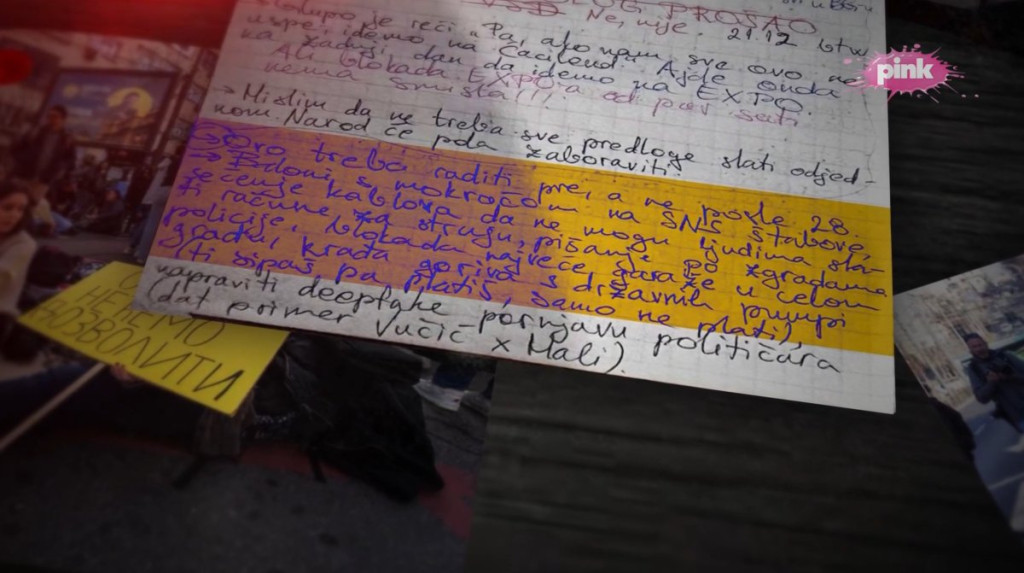 LOG PROŠAO
VSD Ne, nije. 21.12 btw
glupo je reći „Pa, ako nam sve ovo ne
uspe, idemo na Ćaciland. Ajde onda
zadnji dan da idemo na EXPO.
Ali blokada EXPO-a od par sati
nema smisla!!!
→ Mislim da ne treba sve predloge slati odjed-
nom. Narod će pola zaboraviti
→ Ovo treba raditi pre, a ne posle 28.
→ Baloni s mokraćom na SNS štabove,
sečenje kablova da ne mogu ljudima sla-
ti račune za struju, pisanje po zgradama
policije, blokada najveće garaže u celom
gradu, krađa goriva s državnih pumpi
(ti sipaš pa platiš, samo ne plati),
napraviti deepfake pornjavu političara
(dat primer Vučić x Mali).
pink
НЕЋЕМО
ДОЗВОЛИТИ